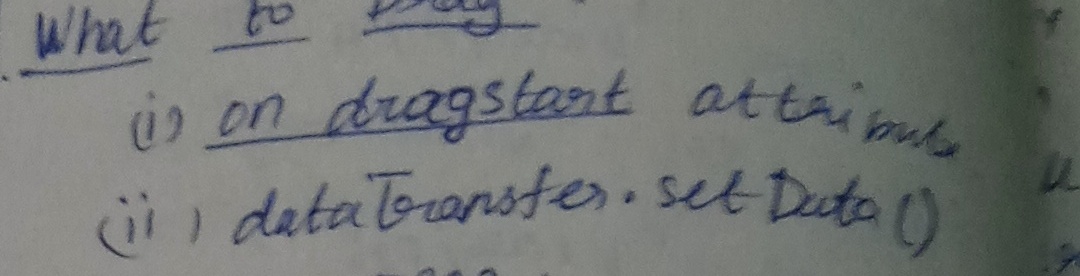 What to Drag
(i) on dragstart attribute
(ii) dataTransfer.setData()